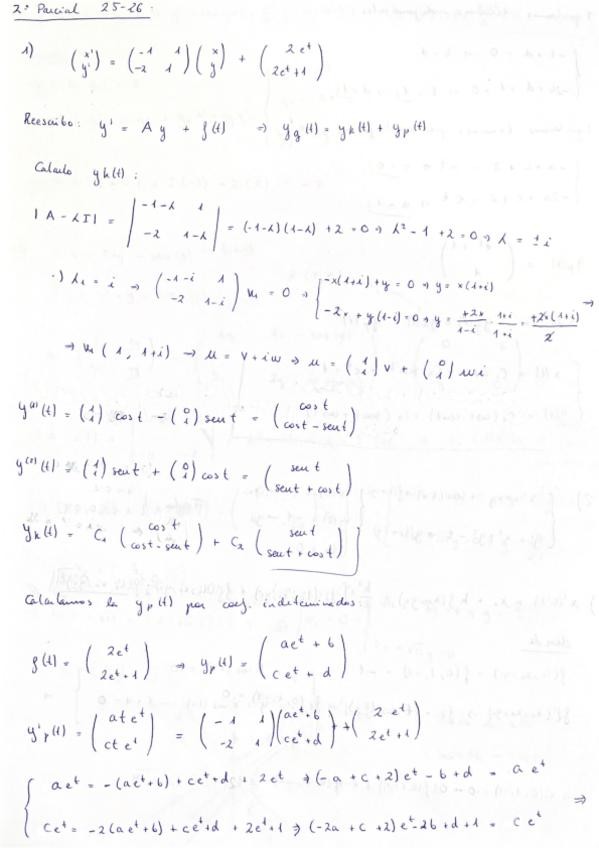 2º Parcial 25-26:
1) (x' y') = (-1 1 -2 1) (x y) + (2e^t 2e^t+1)
Reescribo: y' = A y + f(t) ⇒ y_g(t) = y_h(t) + y_p(t)
Calculo y_h(t):
|A-λI| = |-1-λ 1 -2 1-λ| = (-1-λ)(1-λ) + 2 = 0 → λ² - 1 + 2 = 0 → λ = ±i
·) λ₁ = i → (-1-i 1 -2 1-i) u₁ = 0 → { -x(1+i) + y = 0 → y = x(1+i)
-2x + y(1-i) = 0 → y = +2x/1-i · 1+i/1+i = +2x(1+i)/2 →
→ u₁ (1, 1+i) → u = v + iw → u = (1 1) v + (0 1) wi
y⁽¹⁾(t) = (1 1) cos t - (0 1) sen t = (cos t cos t - sen t)
y⁽²⁾(t) = (1 1) sen t + (0 1) cos t = (sen t sen t + cos t)
y_h(t) = C₁ (cos t cos t - sen t) + C₂ (sen t sen t + cos t)
Calculamos la y_p(t) por coef. indeterminados
f(t) = (2e^t 2e^t+1) ⇒ y_p(t) = (ae^t + b ce^t + d)
y'_p(t) = (a t e^t c t e^t) = (-1 1 -2 1) (ae^t+b ce^t+d) + + (2e^t 2e^t+1)
{ ae^t = -(ae^t+b) + ce^t+d + 2e^t ⇒ (-a + c + 2)e^t - b + d = a e^t
ce^t = -2(ae^t+b) + ce^t+d + 2e^t+1 ⇒ (-2a + c + 2)e^t - 2b + d + 1 = c e^t ⇒